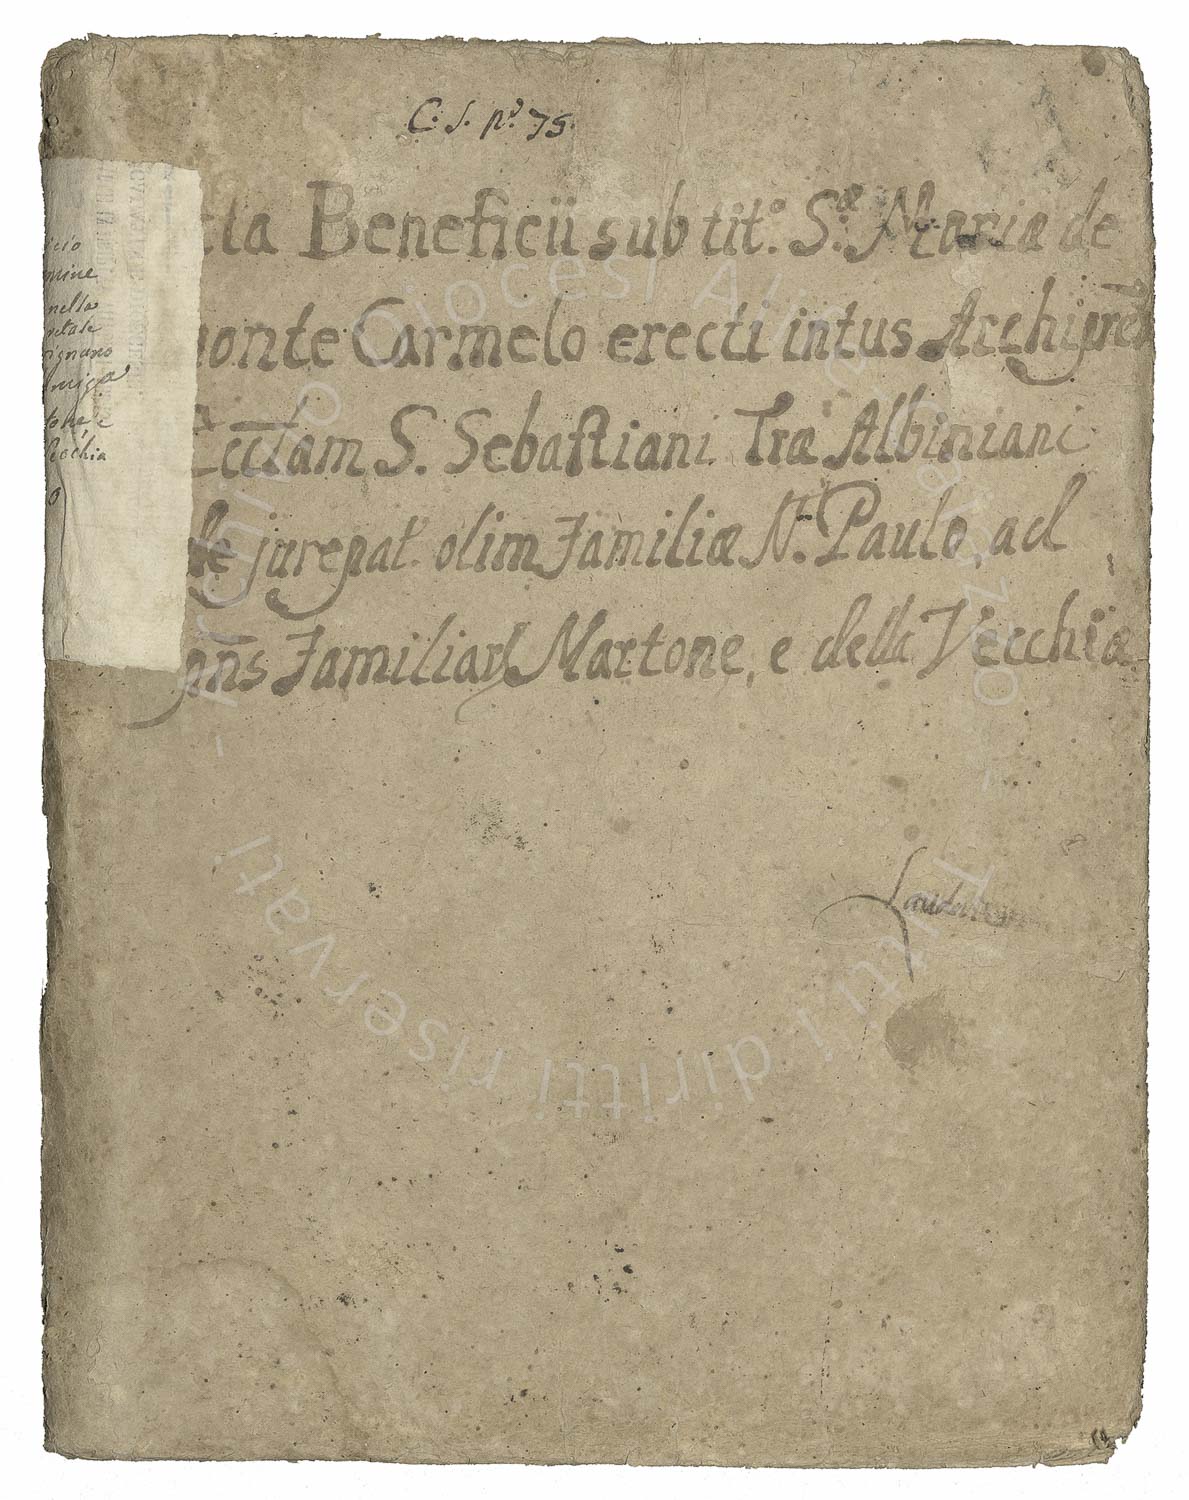 C. S. n.º 75.
cta Beneficii sub tit.º S.æ Mariæ de
monte Carmelo erecti intus Archipret
Ecclam S. Sebastiani Træ Albiniani
de jurepat. olim Familiæ N. Paulo, ad
pñs Familiar Martone, e della Vecchiæ
cio
mine
nella
etale
ignano
one, e
ecchia
o
Archivio Diocesi Alife-Caiazzo - Tutti i diritti riservati -